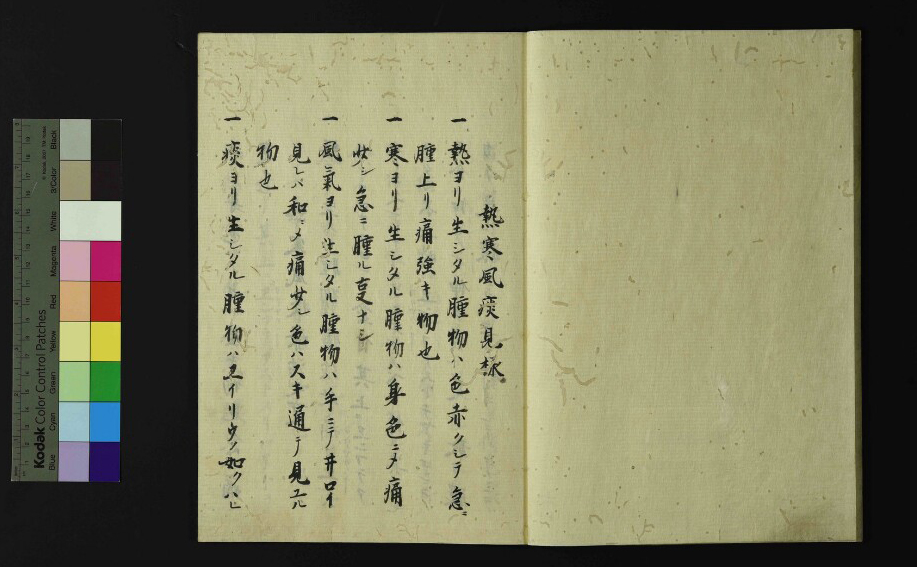 熱寒風痰見様
一 熱ヨリ生シタル腫物ハ色赤クシテ急ニ
腫上リ痛強キ物也
一 寒ヨリ生シタル腫物ハ身色ニメ痛
少シ急ニ腫ル叓ナシ
一 風氣ヨリ生シタル腫物ハ手ニテ井ロイ
見レハ和ニメ痛少シ色ハスキ通テ見ユル
物也
一 痰ヨリ生シタル腫物ハ
如クハレ
Kodak Color Control Patches
Blue Cyan Green Yellow Red Magenta White 3/Color Black